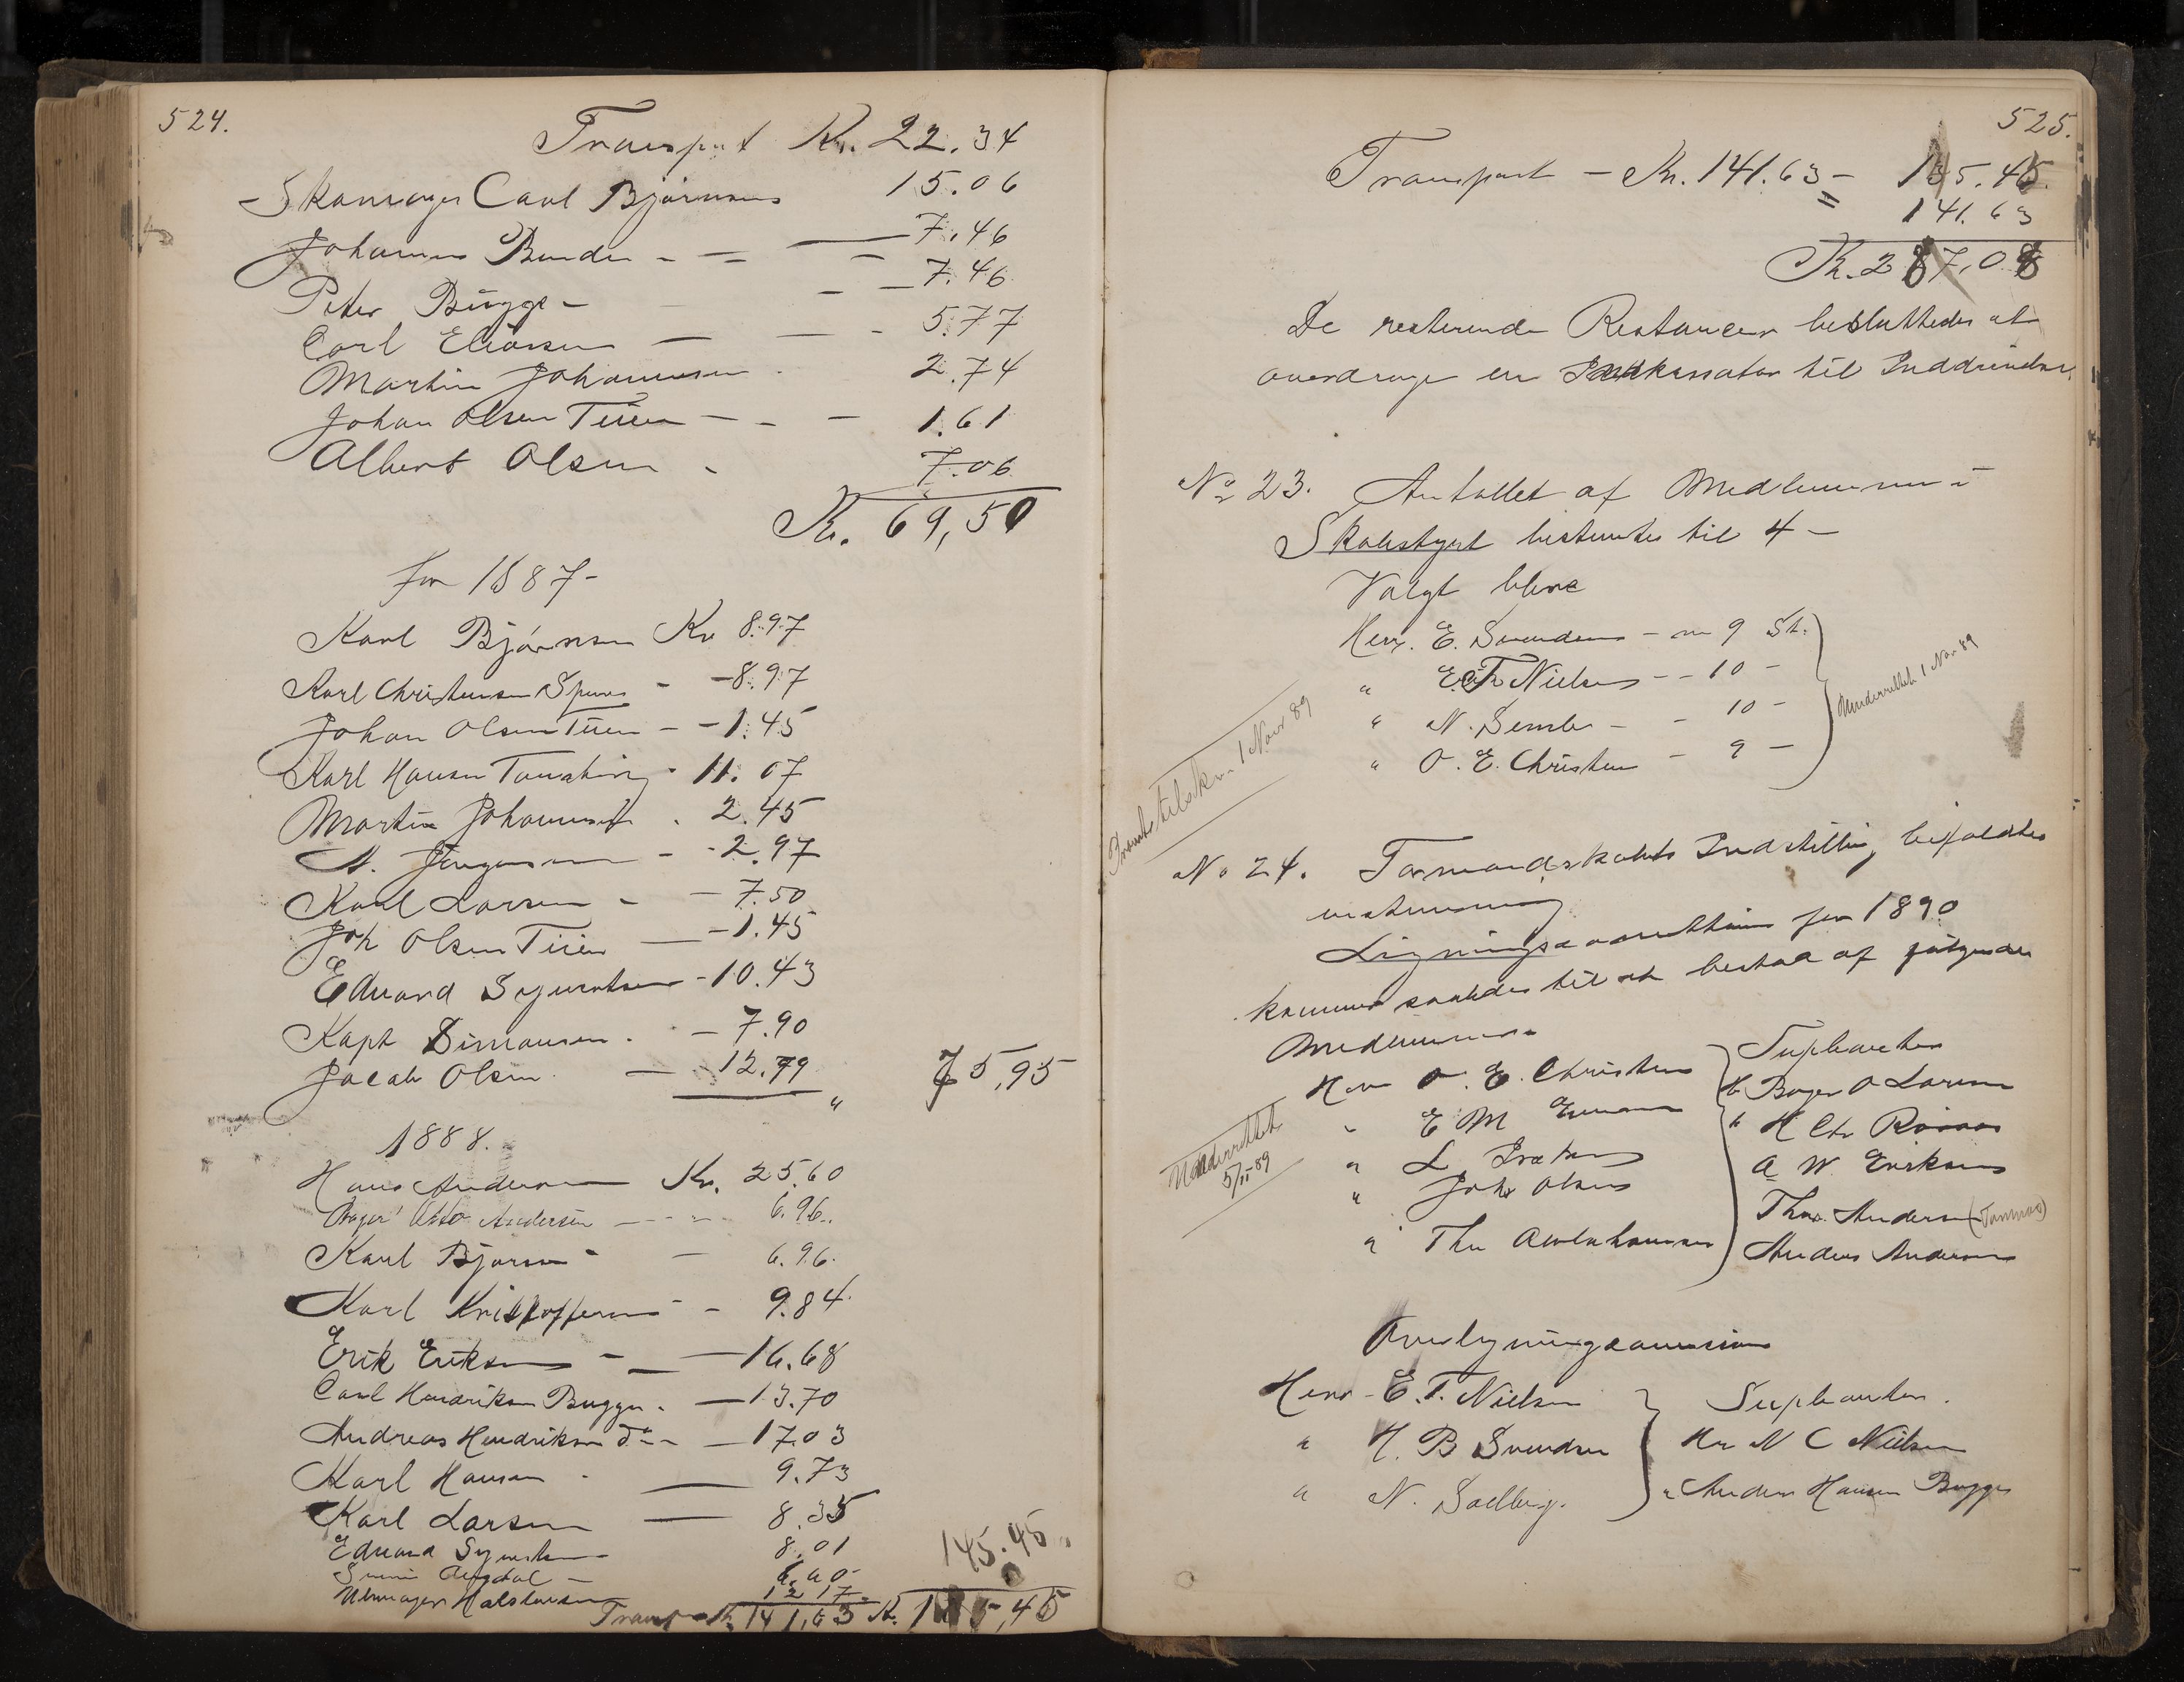 524.
Transport Kr. 22.34
Skomager Carl Bjørnsen 15.06
Johannes Bender - — 7.46
Peter Bugge - - — 7.46
Carl Eliasen — — - 5.77
Martin Johannesen 2.74
Johan Olsen Tuen — - — 1.61
Albert Olsen - 7.06
Kr. 69,50
for 1887-
Karl Bjørnsen Kr 8.97
Karl Christensen - -8.97
Johan Olsen Tuen - - 1.45
Karl Hansen - 11.07
Martin Johannesen . 2.45
Jørgensen - - 2.97
Karl Larsen - — 7.50
Joh Olsen Tuen — - 1.45
Edvard Syvertsen - 10.43
Kapt Simonsen. - 7.90
Jacob Olsen — 12.79
" 75,95
1888.
Hans Andersen Kr. 25.60
Bager Otto Andersen — 6.96.
Karl Bjørnsen - — 6.96.
Karl Kristoffersen - 9.84
Erik Eriksen - — 16.68
Carl Hendriksen Bugge. — 13.70
Andreas Hendriksen do - — 17.03
Karl Hansen - — 9.73
Karl Larsen — 8.35
Edvard Syvertsen - 8.01
Augdal - 6.60
Uhrmager Halstensen 12 17
145.45
Transp. Kr. 141,63 Kr. 145,45
525.
Transport — Kr. 141.63 — 145.45
141.63
Kr. 287,08
De resterende Restancer besluttedes at
overdrage en Inkassator til Inddrivelse.
No 23. Antallet af Medlemmer i
Skolestyret bestemtes til 4 —
Valgt bleve
Herr. E. Svendsen - m 9 St.
" E. T. Nielsen - - 10 -
" N. - - 10 -
" O. E. Christensen - 9 —
Underrettet 1 Nov 89
1 Novr 89
No 24. Formandskabets Indstilling bifaldtes
enstemmig
Ligningscommissionen for 1890
kommer saaledes til at bestaa af følgende
Medlemmer
Herr O. E. Christensen
" E M
" L.
" Johs Olsen
" Thv
Underrettet
5/11 89
Supleanter
Hr Bager O Larsen
" H Chr
A W. Eriksen
Thos. Andersen
Anders Andersen
Overligningscommission
Herr E. T. Nielsen
" H. B Svendsen
" N. Solberg.
Supleanter.
Hr N C Nielsen
" Anders Hansen Bugge